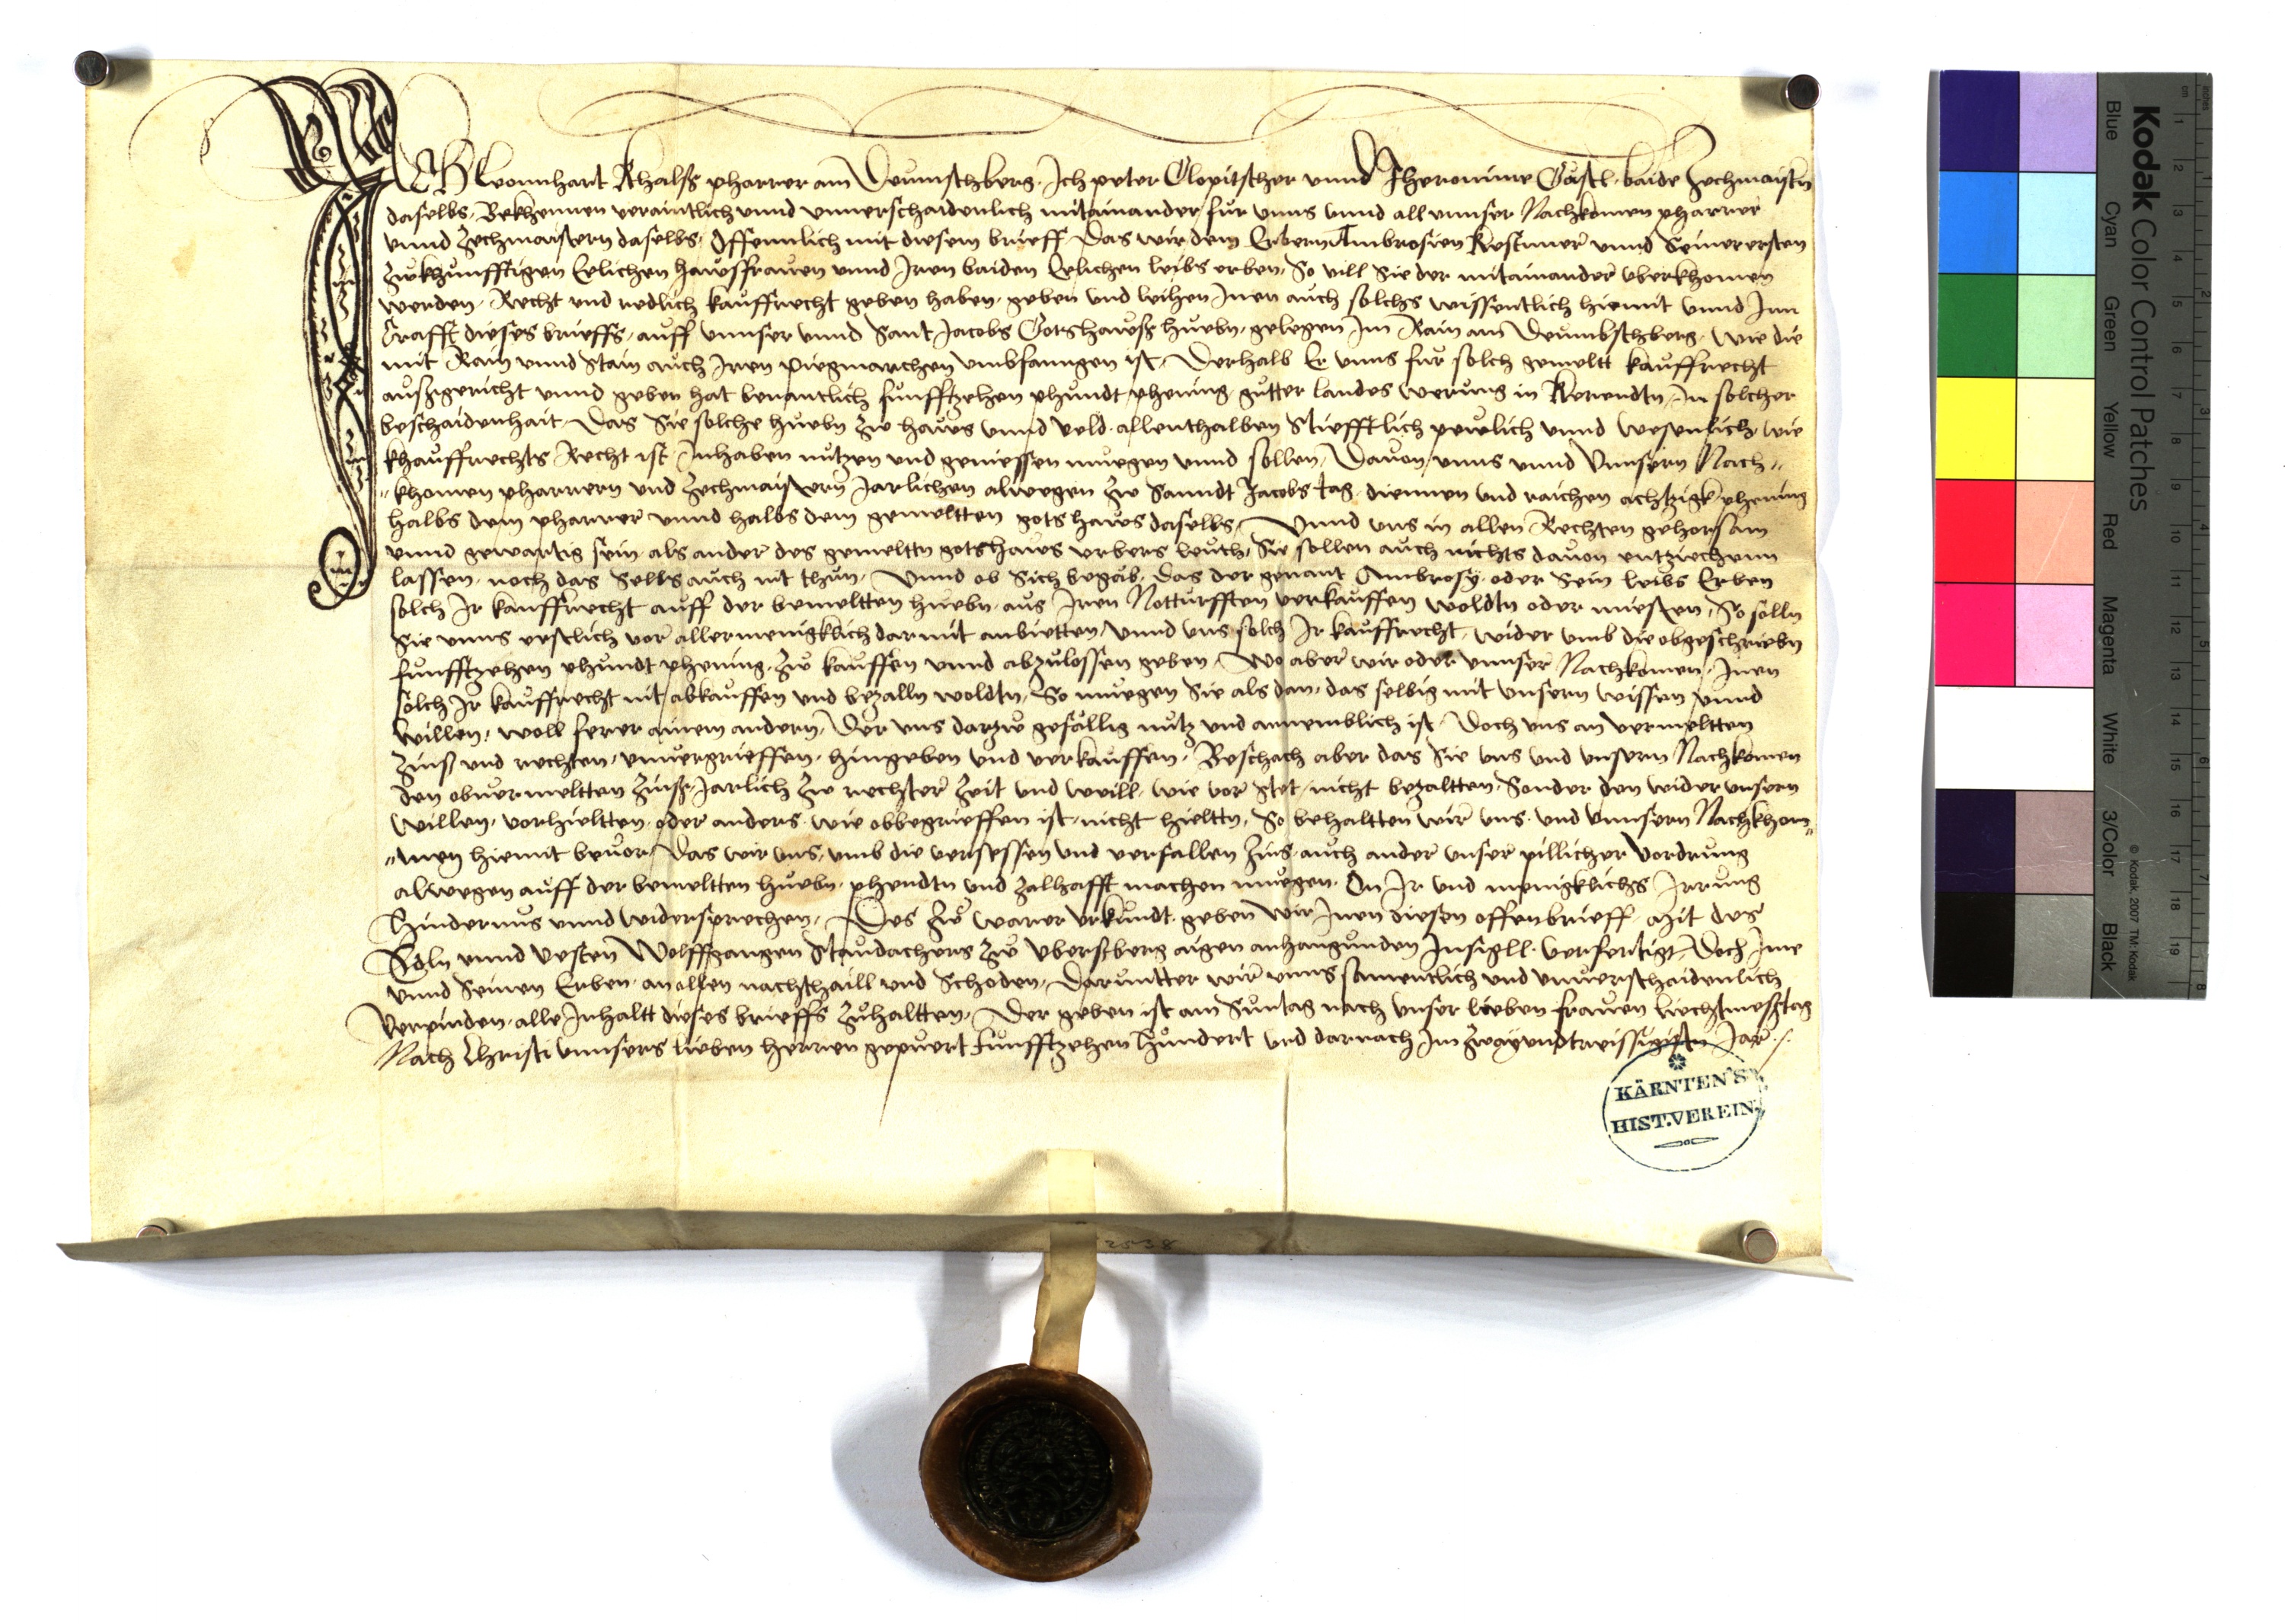 ICH Leonnhart Khalss pharrer am Deumschberg. Ich peter Clopitscher vnnd Jheronime Gastl. baide Zechmaistrn
daselbs. Bekhennen veraintlich vnnd vnnerschaidenlich mitainander fur vnns vnnd all vnnser Nachkomen pharrer
vnnd Zechmaistern daselbs. Offennlich mit diesem brieff. Das wir dem Erbern Ambrosien Kestnner vnnd Seiner ersten
Zwkhunfftigen Eelichen hawsfrauen vnnd Iren baiden Eelichen leibs erben. So vill Sie der mitainander vberkhomen
werden. Recht vnd redlich kauffrecht geben haben. geben vnd leihen Inen auch solchs wissentlich hiemit vnnd Inn
Crafft dieses brieffs. auff vnnser vnnd Sant Jacobs Gotshawss huebn. gelegen Im Rain am Deumbschberg. wie die
mit Rain vnnd Stain auch Iren piegmarchen vmbfanngen ist. Derhalb Er vnns fur solch gemeltt kauffrecht
aussgericht vnnd geben hat benantlich funfftzehen phundt phening gutter landes werung in Kerendtn. In solcher
beschaidenhait. Das Sie solche huebn Zw haws vnnd veld. allenthalben Stiefftlich pewlich vnnd wesenlich. wie
khauffrechts Recht ist. Inhaben nutzen vnd geniessen muegen vnnd sollen. Dauon vnns vnnd Vnnsern Nach"
"khomen pharrern vnd Zechmaistern Jarlichen alwegen Zw Sanndt Jacobs tag. diennen vnd raichen achtzigk phening
halbs dem pharrer vnnd halbs dem gemeltten gotshaws daselbs. Vnnd vns in allen Rechten gehorsam
vnnd gewartig sein als ander des gemeltn gotshaws vrbers leuth. Sie sollen auch nichts dauon entziechenn
lassen. noch das Selbs auch nit thun. Vnnd ob Sich begäb. Das der genant Ambrosy. oder Sein leibs Erben
solch Ir kauffrecht auff der bemeltten huebn. aus Iren Notturfften verkauffen woldtn oder muesten. So solln
Sie vnns erstlich vor allermenigklich darmit anbietten. vnnd vns solch Ir kauffrecht. wider vmb die obgeschriebn
funfftzehen phundt phening. Zw kauffen vnnd abzulossen geben. Wo aber wir oder vnnser Nachkomen. Inen
solch Ir kauffrecht nit abkauffen vnd bezalln woldtn. So muegen Sie als dan. das selbig mit vnsern wissen vnnd
willen. woll ferer ainem andern. Der vns dartzw gefällig nutz vnd annemblich ist. Doch vns an vermeltten
Zinss vnd rechten. vnuergrieffen. hingeben vnd verkauffen. Beschach aber das Sie vns vnd vnsern Nachkomen
den obuermeltten Zinss. Jarlich Zw rechter Zeit vnd weill. wie vor Stet. nicht bezaltten. Sonder den wider vnsern
willen. vorhieltten. oder anders. wie obbegrieffen ist. nicht hieltn. So behaltten wir vns. vnd vnnsern Nachkhom"
"men hiemit beuor. Das wir vns. vmb die versessen vnd verfallen Zins. auch ander vnser pillicher Vordrung
alwegen auff der bemeltten huebn. phendtn vnd Zalhafft machen muegen. On Ir vnd menigklichs Irrung
Hindernus vnnd widersprechen. Des Zw warer vrkundt. geben wir Inen diesen offen brieff. Mit des
Edln vnnd Vesten Wolffgangen Staudachers Zw Vberstberg aigen anhangunden Insigll. Verfertigt. Doch Ime
vnnd Seinen Erben. an allen nachthaill vnd Schoden. Daruntter wir vnns samentlich vnd vnuerschaidenlich
Verpinden. alle Inhaltt dieses brieffs Zuhaltten. Der geben ist am Suntag nach vnser lieben frauen liechtmesstag
Nach Christi vnnsers lieben herren gepuert Funfftzehen Hundert vnd darnach Im Zwayundtreissigistn Jar.
KÄRNTEN'S
HIST.VEREIN
2538
Kodak Color Control Patches
© Kodak, 2007 TM: Kodak
Blue Cyan Green Yellow Red Magenta White 3/Color Black
cm 1 2 3 4 5 6 7 8 9 10 11 12 13 14 15 16 17 18 19
inches 1 2 3 4 5 6 7 8